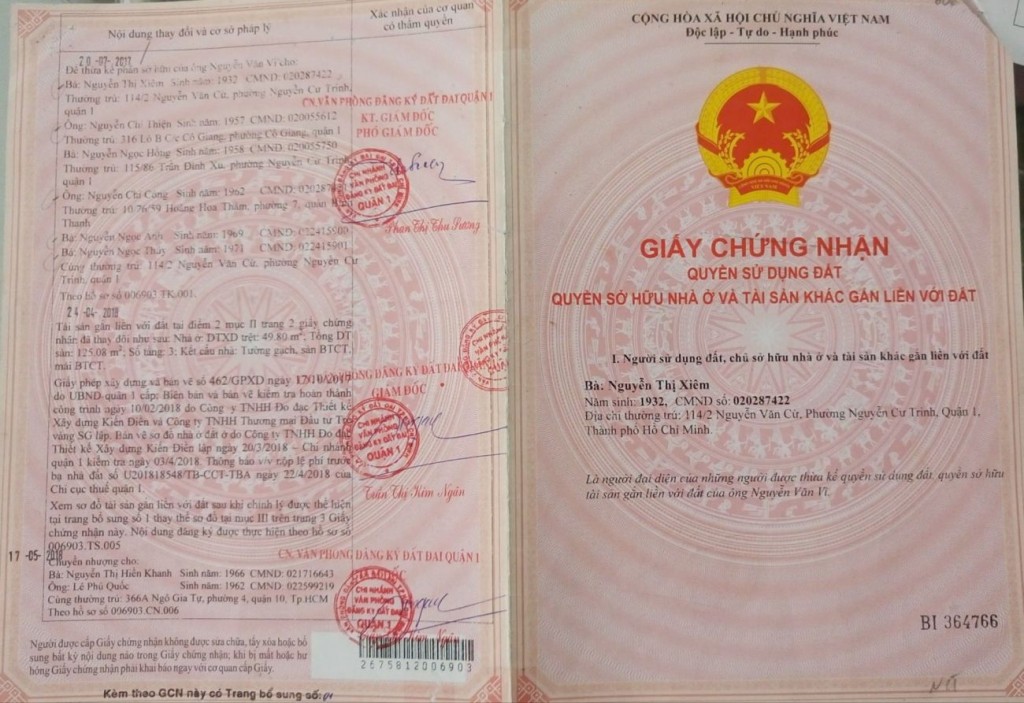 Nội dung thay đổi và cơ sở pháp lý
Xác nhận của cơ quan
có thẩm quyền
20-07-2017
Để thừa kế phần sở hữu của ông Nguyễn Văn Vi cho:
Bà: Nguyễn Thị Xiêm Sinh năm: 1932 CMND: 020287422
Thường trú: 114/2 Nguyễn Văn Cừ, phường Nguyễn Cư Trinh,
quận 1
Ông: Nguyễn Chí Thiện Sinh năm: 1957 CMND: 020055612
Thường trú: 316 Lô B C/c Cô Giang, phường Cô Giang, quận 1
Bà: Nguyễn Ngọc Hồng Sinh năm: 1958 CMND: 020055750
Thường trú: 115/86 Trần Đình Xu, phường Nguyễn Cư Trinh,
quận 1
Ông: Nguyễn Chí Công Sinh năm: 1962 CMND:
Thường trú: 10/76/59 Hoàng Hoa Thám, phường 7, quận Bình
Thạnh
Bà: Nguyễn Ngọc Anh Sinh năm: 1969 CMND: 022415900
Bà: Nguyễn Ngọc Thủy Sinh năm: 1971 CMND: 022415901
Cùng thường trú: 114/2 Nguyễn Văn Cừ, phường Nguyễn Cư
Trinh, quận 1
Theo hồ sơ số 006903.TK.001.
CN.VĂN PHÒNG ĐĂNG KÝ ĐẤT ĐAI QUẬN 1
KT. GIÁM ĐỐC
PHÓ GIÁM ĐỐC
CHI NHÁNH
VĂN PHÒNG
ĐĂNG KÝ ĐẤT ĐAI
QUẬN 1
Phan Thị Thu Sương
24-04-2018
Tài sản gắn liền với đất tại điểm 2 mục II trang 2 giấy chứng
nhận: đã thay đổi như sau: Nhà ở: DTXD trệt: 49.80 m²; Tổng DT
sàn: 125.08 m²; Số tầng: 3; Kết cấu nhà: Tường gạch, sàn BTCT,
mái BTCT.
Giấy phép xây dựng và bản vẽ số 462/GPXD ngày 12/10/2017
do UBND quận 1 cấp; Biên bản và bản vẽ kiểm tra hoàn thành
công trình ngày 10/02/2018 do Công ty TNHH Đo đạc Thiết kế
Xây dựng Kiến Điền và Công ty TNHH Thương mại Đầu tư Trí
vàng SG lập. Bản vẽ sơ đồ nhà ở đất ở do Công ty TNHH Đo đạc
Thiết kế Xây dựng Kiến Điền lập ngày 20/3/2018 – Chi nhánh
quận 1 kiểm tra ngày 03/4/2018. Thông báo v/v nộp lệ phí trước
bạ nhà đất số U201818548/TB-CCT-TBA ngày 22/4/2018 của
Chi cục thuế quận 1.
Xem sơ đồ tài sản gắn liền với đất sau khi chỉnh lý được thể hiện
tại trang bổ sung số 1 thay thế sơ đồ tại mục III trên trang 3 Giấy
chứng nhận này. Nội dung đăng ký được thực hiện theo hồ sơ số
006903.TS.005
CN. VĂN PHÒNG ĐĂNG KÝ ĐẤT ĐAI QUẬN 1
GIÁM ĐỐC
CHI NHÁNH
VĂN PHÒNG
ĐĂNG KÝ ĐẤT ĐAI
QUẬN 1
Trần Thị Kim Ngân
17-05-2018
Chuyển nhượng cho:
Bà: Nguyễn Thị Hiền Khanh Sinh năm: 1966 CMND: 021716643
Ông: Lê Phú Quốc Sinh năm: 1962 CMND: 022599219
Cùng thường trú: 366A Ngô Gia Tự, phường 4, quận 10, Tp.HCM
Theo hồ sơ số 006903.CN.006
CN. VĂN PHÒNG ĐĂNG KÝ ĐẤT ĐAI QUẬN 1
CHI NHÁNH
VĂN PHÒNG
ĐĂNG KÝ ĐẤT ĐAI
QUẬN 1
Người được cấp Giấy chứng nhận không được sửa chữa, tẩy xóa hoặc bổ
sung bất kỳ nội dung nào trong Giấy chứng nhận; khi bị mất hoặc hư
hỏng Giấy chứng nhận phải khai báo ngay với cơ quan cấp Giấy.
2675812006903
Kèm theo GCN này có Trang bổ sung số: 01
CỘNG HÒA XÃ HỘI CHỦ NGHĨA VIỆT NAM
Độc lập - Tự do - Hạnh phúc
VIỆT NAM
GIẤY CHỨNG NHẬN
QUYỀN SỬ DỤNG ĐẤT
QUYỀN SỞ HỮU NHÀ Ở VÀ TÀI SẢN KHÁC GẮN LIỀN VỚI ĐẤT
I. Người sử dụng đất, chủ sở hữu nhà ở và tài sản khác gắn liền với đất
Bà: Nguyễn Thị Xiêm
Năm sinh: 1932, CMND số: 020287422
Địa chỉ thường trú: 114/2 Nguyễn Văn Cừ, Phường Nguyễn Cư Trinh, Quận 1,
Thành phố Hồ Chí Minh.
Là người đại diện của những người được thừa kế quyền sử dụng đất, quyền sở hữu
tài sản gắn liền với đất của ông Nguyễn Văn Vi.
BI 364766